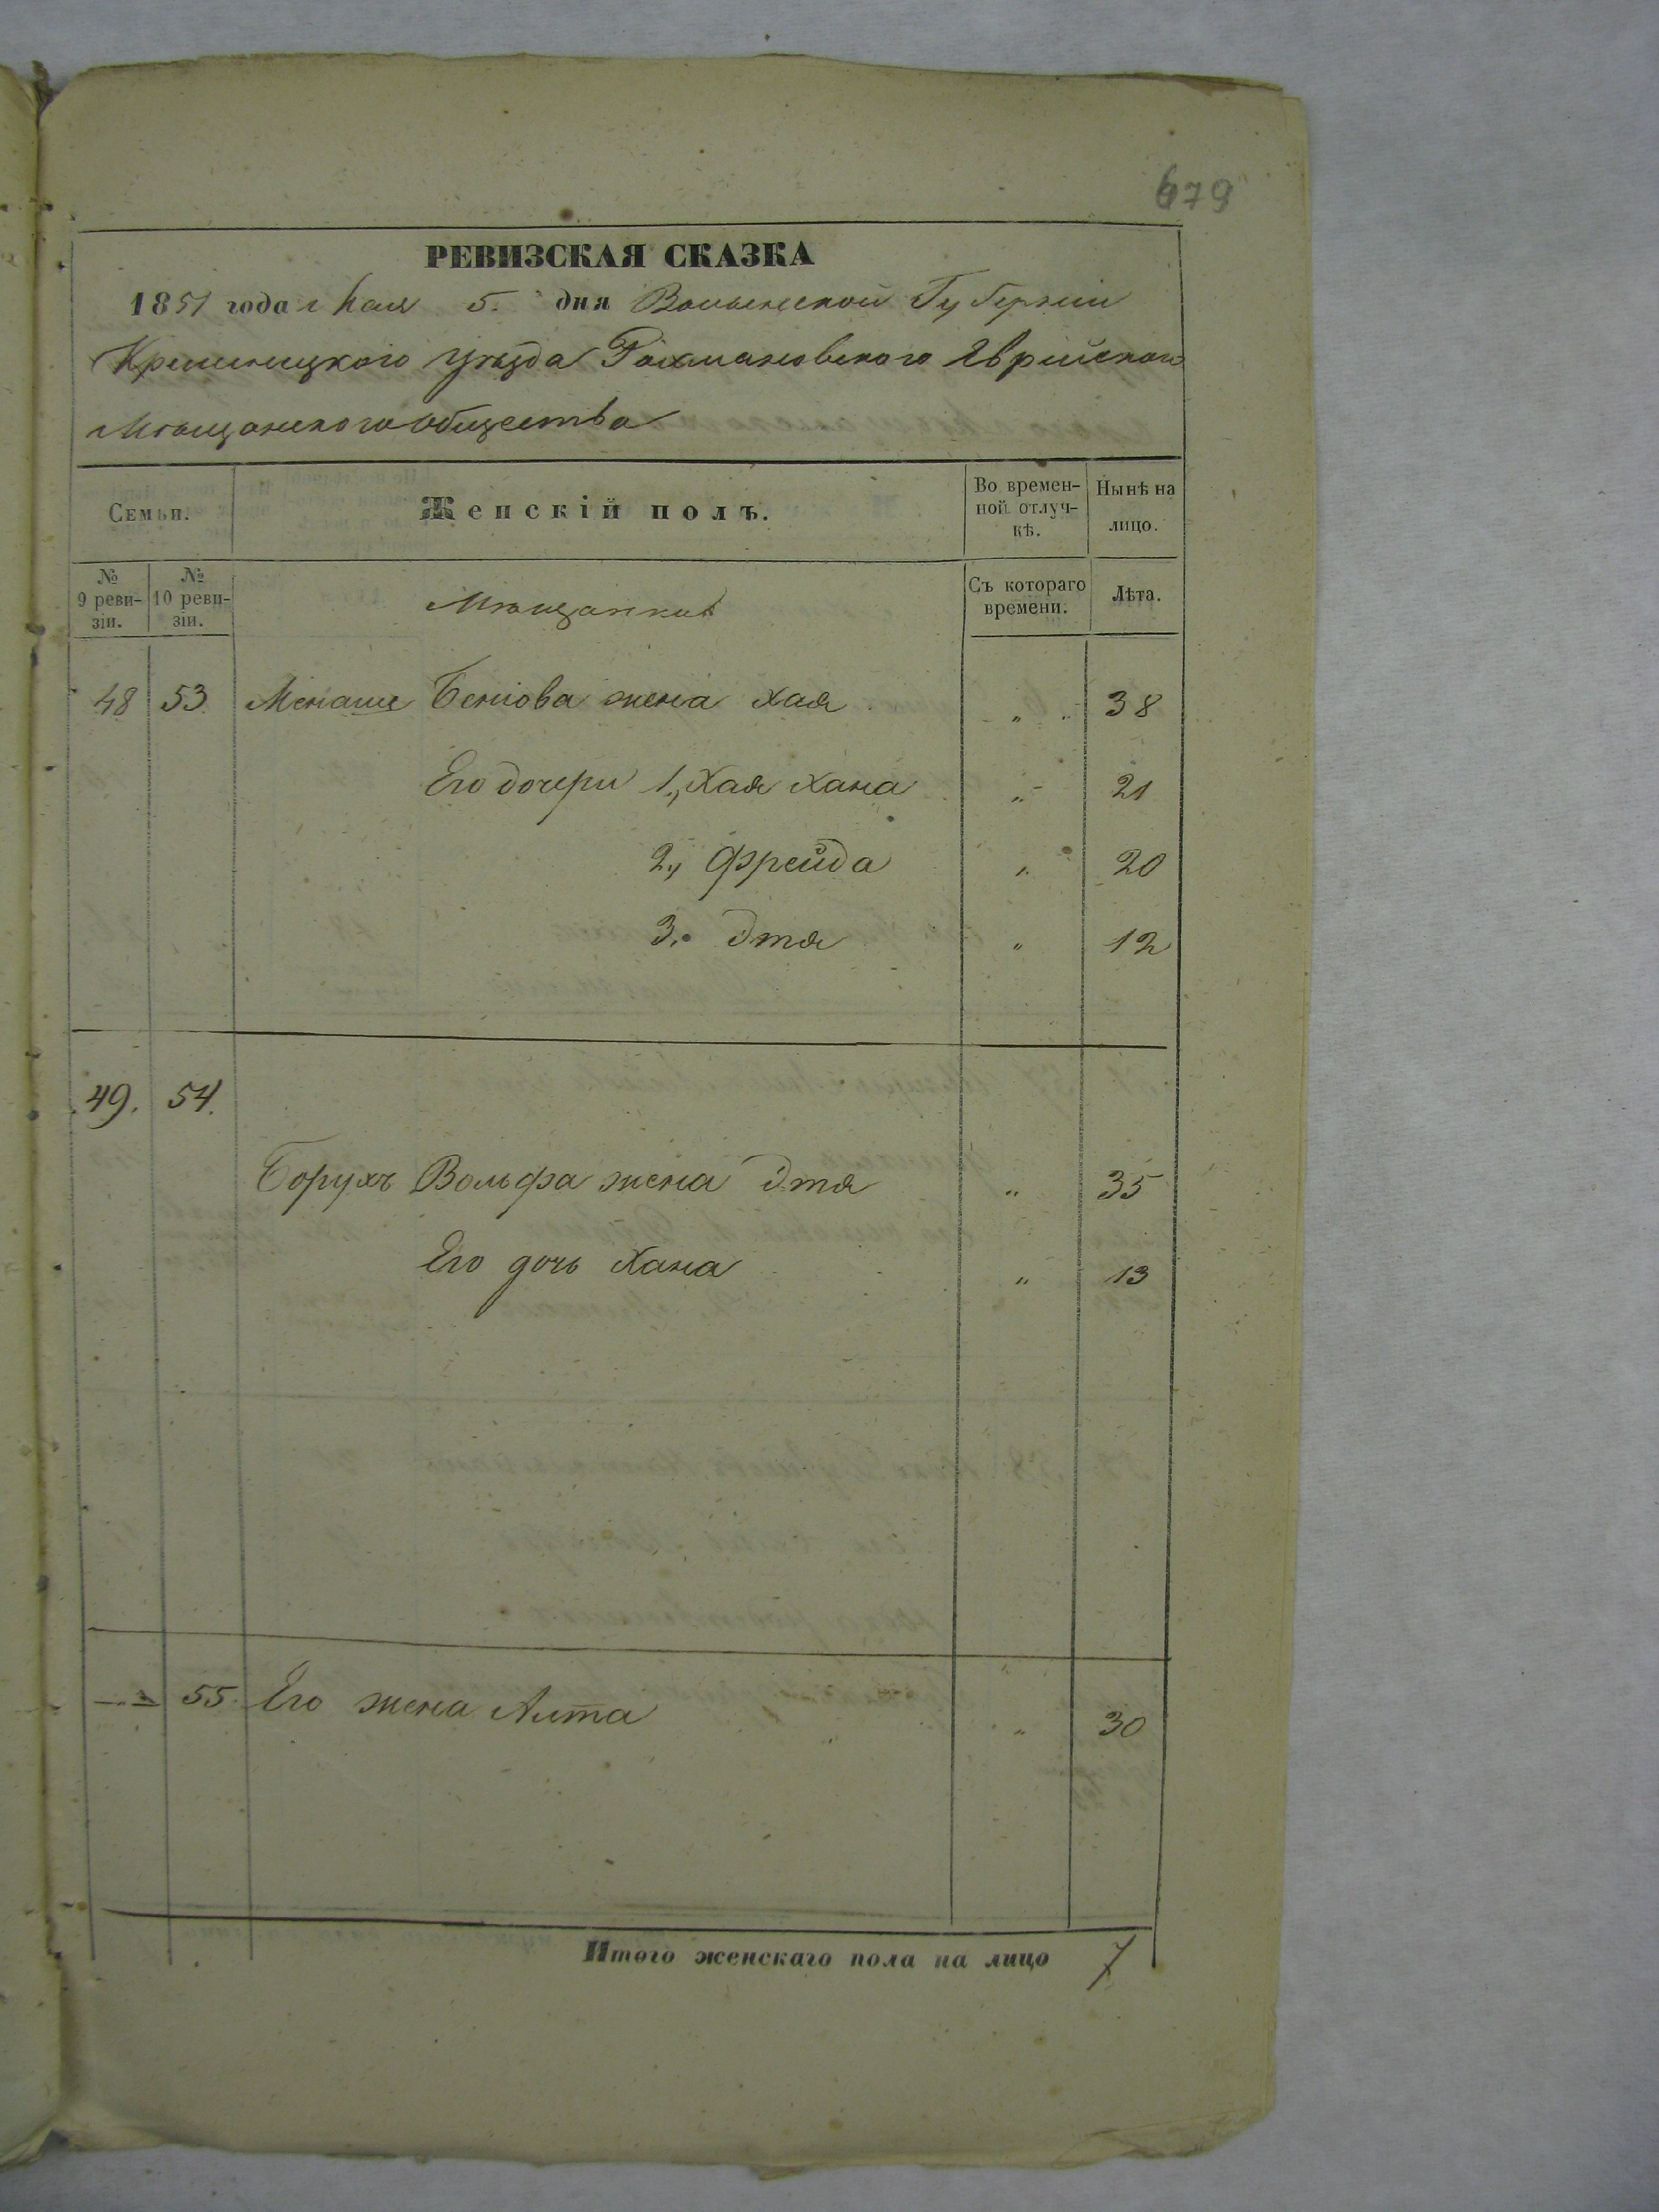 679
РЕВИЗСКАЯ СКАЗКА
1851 года Мая 5. дня Волынской Губерніи
Кременецкого Уѣзда Рахмановского Еврейского
Мѣщанского Общества
Семьи.
Женскій полъ.
Во времен-
ной отлуч-
кѣ.
Нынѣ на
лицо.
№
9 реви-
зіи.
№
10 реви-
зіи.
Мѣщанки
Съ котораго
времени.
Лѣта.
48 53 Менаше Беніова жена Хая „ 38
Его дочери 1., Хая Хана „ 21
2., Фрейда „ 20
3. Этя „ 12
49. 54.
Борухъ Вольфа жена Этя „ 35
Его дочь Хана „ 13
55. Его жена Алта „ 30
Итого женскаго пола на лицо 7